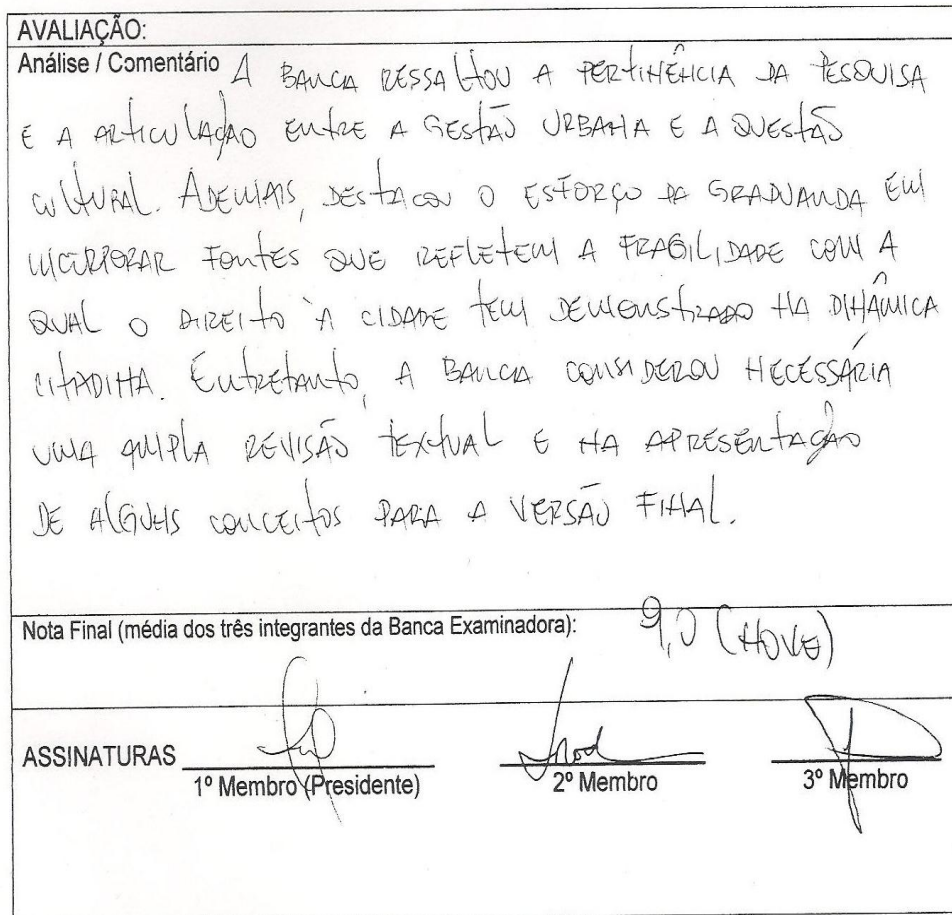 AVALIAÇÃO:
Análise / Comentário A BANCA RESSALTOU A PERTINÊNCIA DA PESQUISA
E A ARTICULAÇÃO ENTRE A GESTÃO URBANA E A QUESTÃO
CULTURAL. ADEMAIS, DESTACOU O ESFORÇO DA GRADUANDA EM
INCORPORAR FONTES QUE REFLETEM A FRAGILIDADE COM A
QUAL O DIREITO À CIDADE TEM DEMONSTRADO NA DINÂMICA
CITADINA. ENTRETANTO, A BANCA CONSIDEROU NECESSÁRIA
UMA AMPLA REVISÃO TEXTUAL E NA APRESENTAÇÃO
DE ALGUNS CONCEITOS PARA A VERSÃO FINAL.
Nota Final (média dos três integrantes da Banca Examinadora): 9,0 (NOVE)
ASSINATURAS
1º Membro (Presidente) 2º Membro 3º Membro